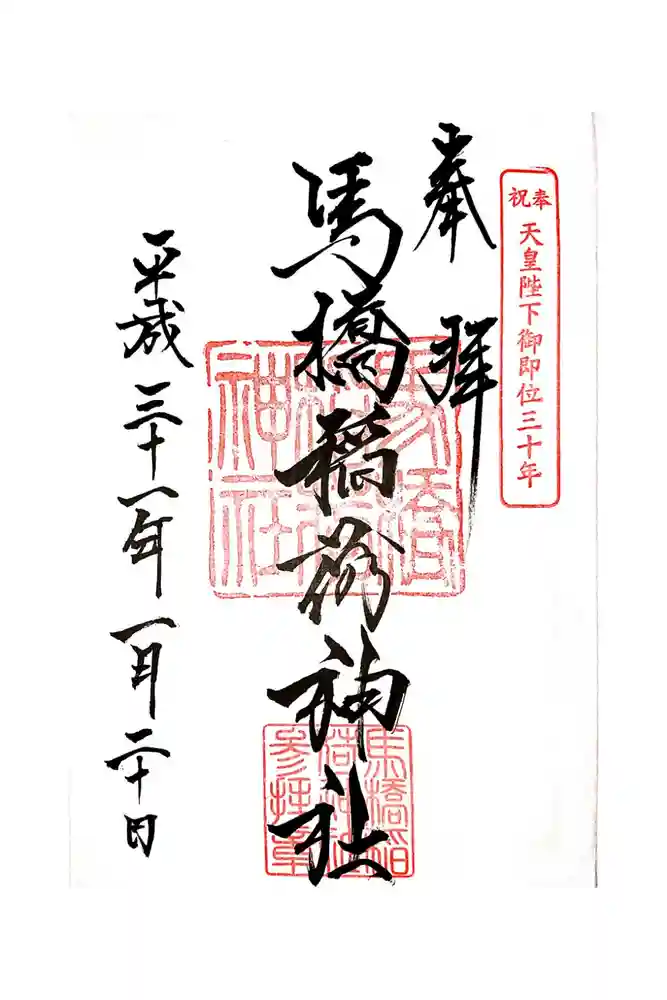 奉祝
天皇陛下御即位三十年
奉拜
馬橋稲荷神社
馬橋
稲荷
神社
馬橋稲
荷神社
参拝章
平成三十一年一月二十日